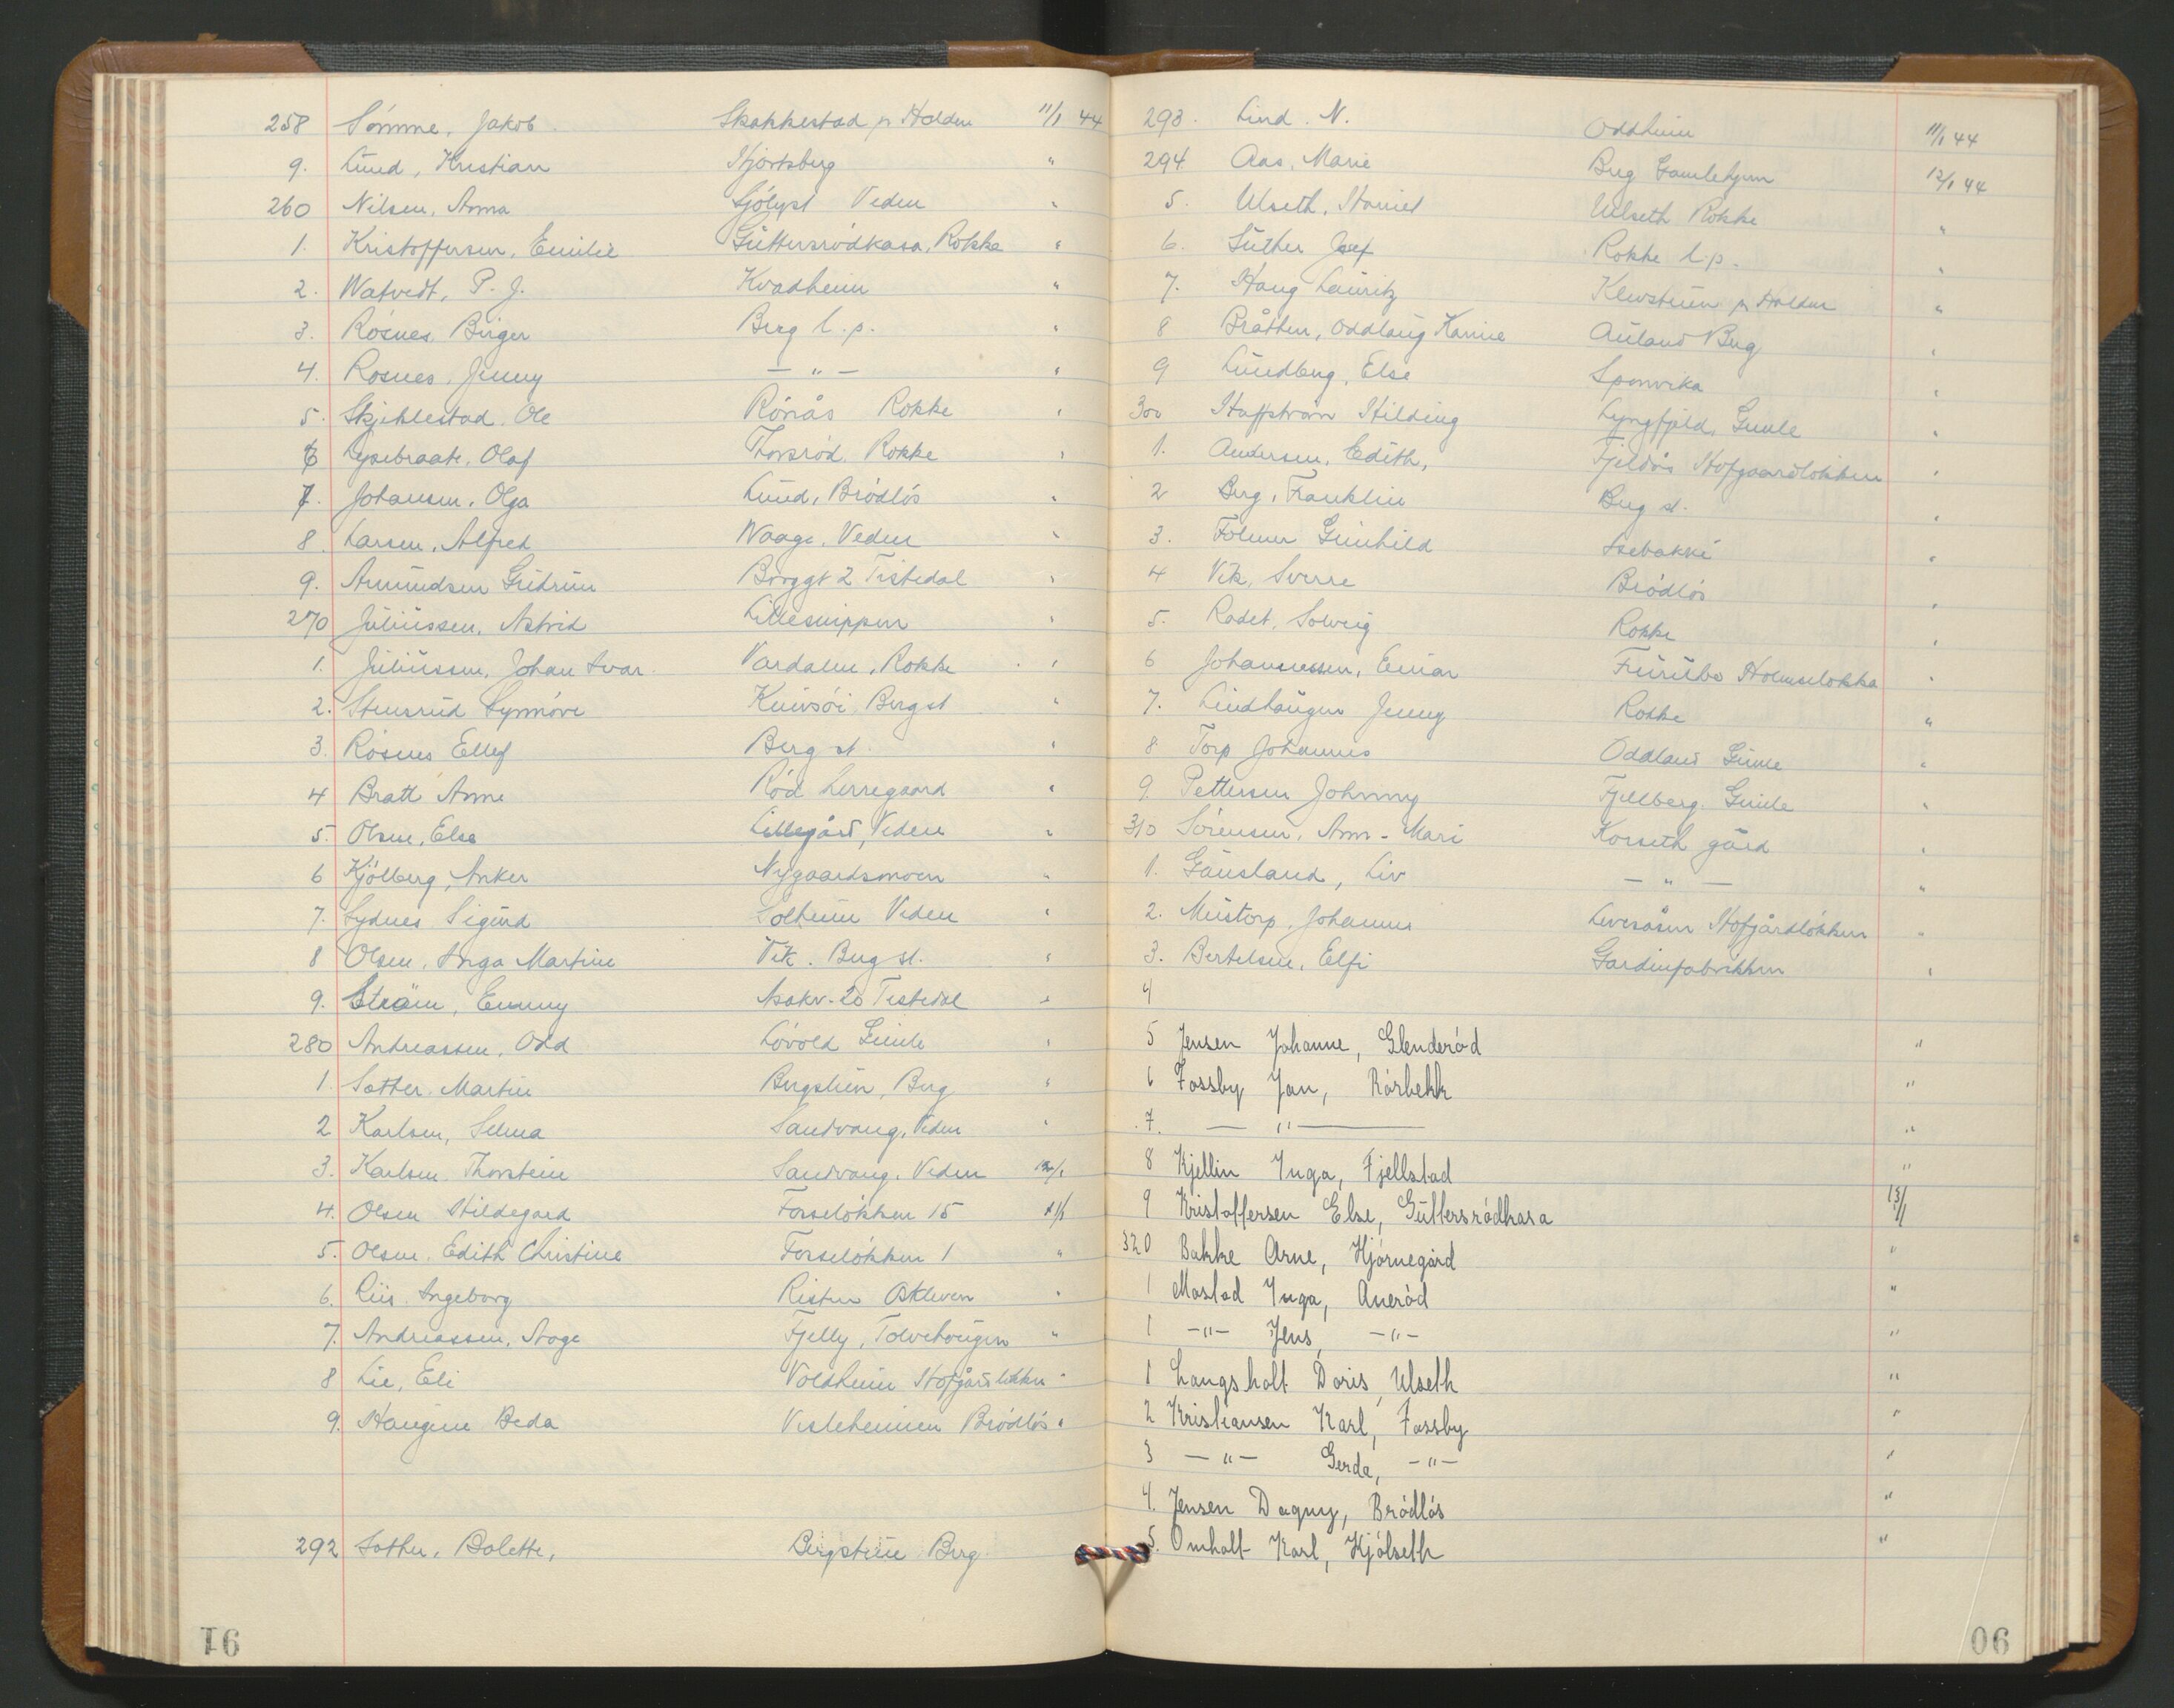 258 Sömme, Jakob Skakkestad pr Halden 11/1 44
9. Lund, Kristian Hjortsberg "
260 Nilsen, Anna Sjölyst Veden "
1. Kristoffersen, Emilie Guttersrödkasa, Rokke "
2. Watvedt, P. J. Kvadheim "
3. Rösnes, Birger Berg l.p. "
4. Rosnes, Jenny — " — "
5. Skjeklestad, Ole Rönås Rokke "
6 Lysebraate, Olaf Thorsröd, Rokke "
7. Johansen, Olga Lund, Brödlös "
8. Larsen, Alfred Waage, Veden "
9. Amundsen Gudrun Borggt 2 Tistedal "
270 Juliussen, Astrid Lillesnippen "
1. Juliussen, Johan Ivar. Vardalen, Rokke "
2. Stensrud Synnöve Knivsöi, Berg st "
3. Rösnes Ellef Berg st. "
4 Bratt Anne Röd herregaard "
5. Olsen, Else Lillegård, Veden "
6 Kjölberg, Anker Nygaardsmoen "
7. Sydnes Sigurd Solheim Veden "
8 Olsen, Inga Martine Vik. Berg st. "
9. Ström, Emmy Asakv. 20 Tistedal "
280 Andreassen, Odd Lövold Gimle "
1. Sother. Martin Bergstien, Berg "
2 Karlsen, Selma Sandvang, Veden "
3. Karlsen Thorstein Sandvang, Veden 12/1
4. Olsen Hildegard Forselökken 15 11/1
5. Olsen. Edith Christine Forselökken 1 "
6. Riis. Ingeborg Risten Askleven "
7. Andreassen, Aage Fjelly, Tolvehaugen "
8 Lie, Eli Voldheim Hofgårdlökken "
9. Haugene Beda Vesleheimen Brödlös "
292 Sother, Bolette, Bergstien Berg
91
293. Lind. N. Oddheim 11/1 44
294. Aas, Marie Berg Gamlehjem 12/1 44
5. Ulseth, Harriet Ulseth Rokke "
6. Luther Josef Rokke l.p. "
7. Haug Lauritz Klevsteen pr Halden "
8 Bråtten, Oddlaug Karine Auland Berg "
9 Lundberg, Else Sponvika "
300 Haffström Hilding Lyngfjeld, Gimle "
1. Andersen, Edith, Fjeldås Hofgaardlökken "
2 Berg, Franklin Berg st. "
3. Folmer Gunhild Isebakke "
4 Vik, Sverre Brödlös "
5. Rodet, Solveig Rokke "
6 Johannessen, Einar Furubo Holmselökka "
7. Lindhaugen Jenny Rokke "
8 Torp Johannes Oddland Gimle "
9. Pettersen Johnny Fjellberg. Gimle "
310 Sörensen, Ann-Mari Korseth gård "
1. Gausland, Liv — " — "
2. Mustorp. Johannes Livesåsen Hofgårdlökken "
3. Bertelsen, Elfi Gardinfabrikken "
4
5 Jensen Johanne, Glenderöd "
6 Fossby Jan, Rörbekk "
7. — " — "
8 Kjellin Inga, Fjellstad "
9 Kristoffersen Else, Guttersrödkasa 13/1
320 Bakke Arne, Hjörnegård "
1 Mostad Inga, Aueröd "
1 —"— Jens, —"— "
1 Langsholt Doris, Ulseth "
2 Kristiansen Karl, Fossby "
3 —"— Gerda, —"— "
4. Jensen Dagny, Brödlös "
5. Omholt Karl, Kjölseth "
90